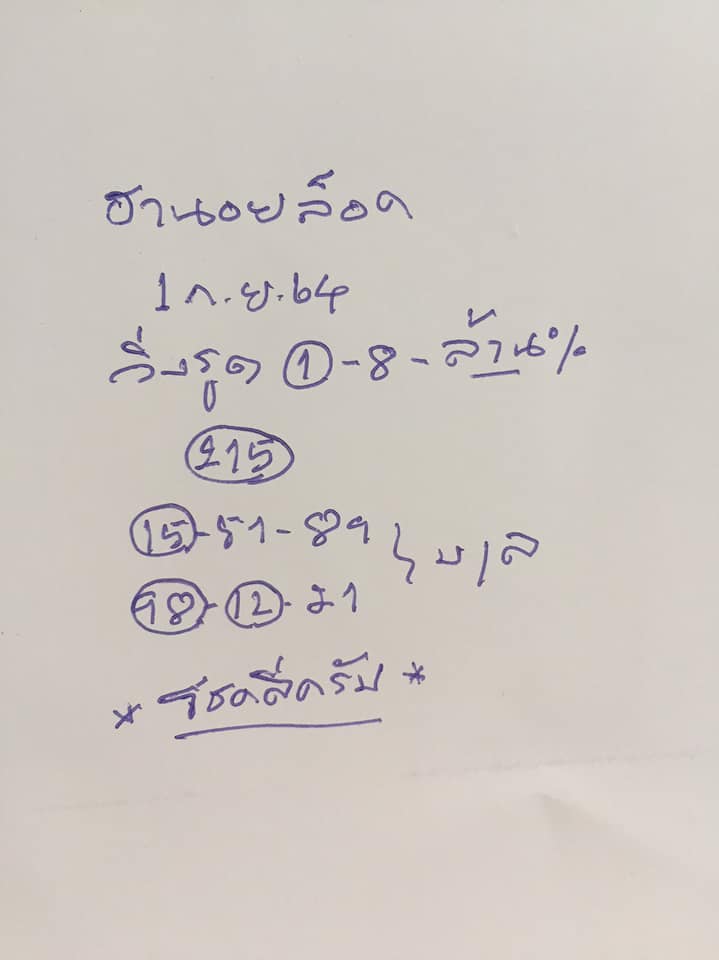 ฮานอยล็อค
1 ก.ย. 64
วิ่งรูด 1-8-ล้าน%
215
15-51-89
98-12-21 } บ/ล
* โชคดีครับ *